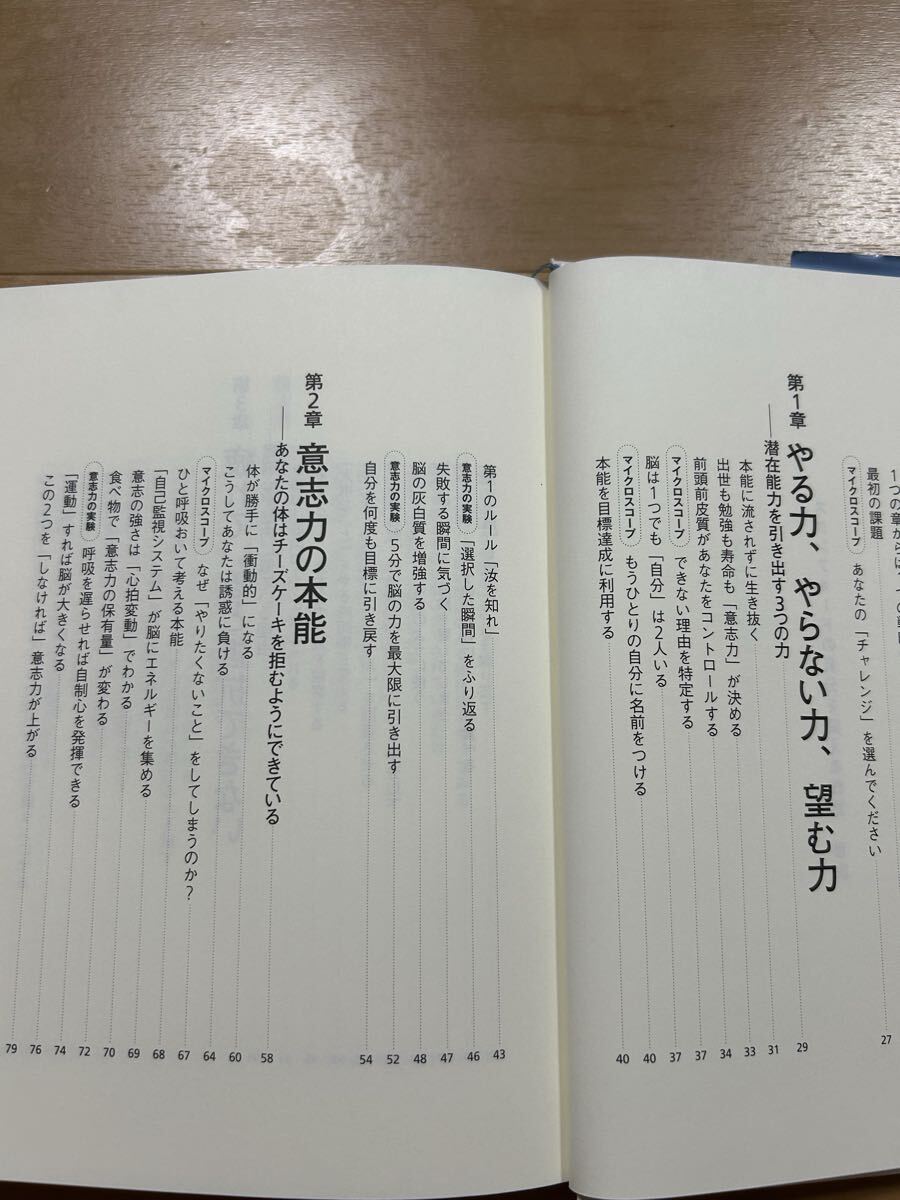 1つの章から
最初の課題
マイクロスコープ あなたの「チャレンジ」を選んでください 27
第1章 やる力、やらない力、望む力
——潜在能力を引き出す3つの力 29
本能に流されずに生き抜く 31
出世も勉強も寿命も「意志力」が決める 33
前頭前皮質があなたをコントロールする 34
マイクロスコープ できない理由を特定する 37
脳は1つでも「自分」は2人いる 37
マイクロスコープ もうひとりの自分に名前をつける 40
本能を目標達成に利用する 40
第1のルール「汝を知れ」 43
意志力の実験 「選択した瞬間」をふり返る 46
失敗する瞬間に気づく 47
脳の灰白質を増強する 48
意志力の実験 5分で脳の力を最大限に引き出す 52
自分を何度も目標に引き戻す 54
第2章 意志力の本能
——あなたの体はチーズケーキを拒むようにできている 58
体が勝手に「衝動的」になる 60
こうしてあなたは誘惑に負ける 64
マイクロスコープ なぜ「やりたくないこと」をしてしまうのか? 67
ひと呼吸おいて考える本能 68
「自己監視システム」が脳にエネルギーを集める 69
意志の強さは「心拍変動」でわかる 70
食べ物で「意志力の保有量」が変わる 72
意志力の実験 呼吸を遅らせれば自制心を発揮できる 74
「運動」すれば脳が大きくなる 76
この2つを「しなければ」意志力が上がる 79